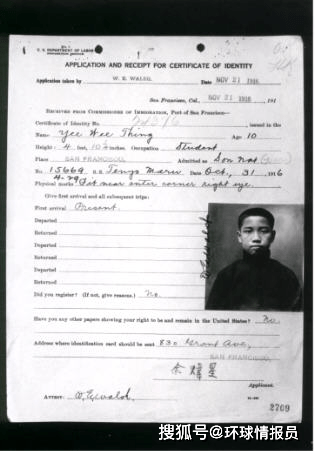 U. S. DEPARTMENT OF LABOR
APPLICATION AND RECEIPT FOR CERTIFICATE OF IDENTITY
Application taken by W. E. WALSH. Date NOV 21 1916
San Francisco, Cal., NOV 21 1916 191
RECEIVED FROM COMMISSIONER OF IMMIGRATION, Port of San Francisco—
Certificate of Identity No. issued in the
Name Yee Wee Thing Age 10
Height 4 feet, 10½ inches. Occupation Student
Place SAN FRANCISCO. Admitted as Son Nat
No 15669 S.S. Tenyo Maru. Date Oct, 31 1916
4-29
Physical marks Pit near outer corner right eye.
Give first arrival and all subsequent trips:
First arrival Present.
Departed
Returned
Departed
Returned
Departed
Returned
Did you register? (If not, give reasons.) No.
Have you any other papers showing your right to be and remain in the United States? No.
Address where identification card should be sent 830 Grant Ave,
SAN FRANCISCO,
余煒星
Applicant.
ATTEST: W. Ewald
2709
搜狐号@环球情报员